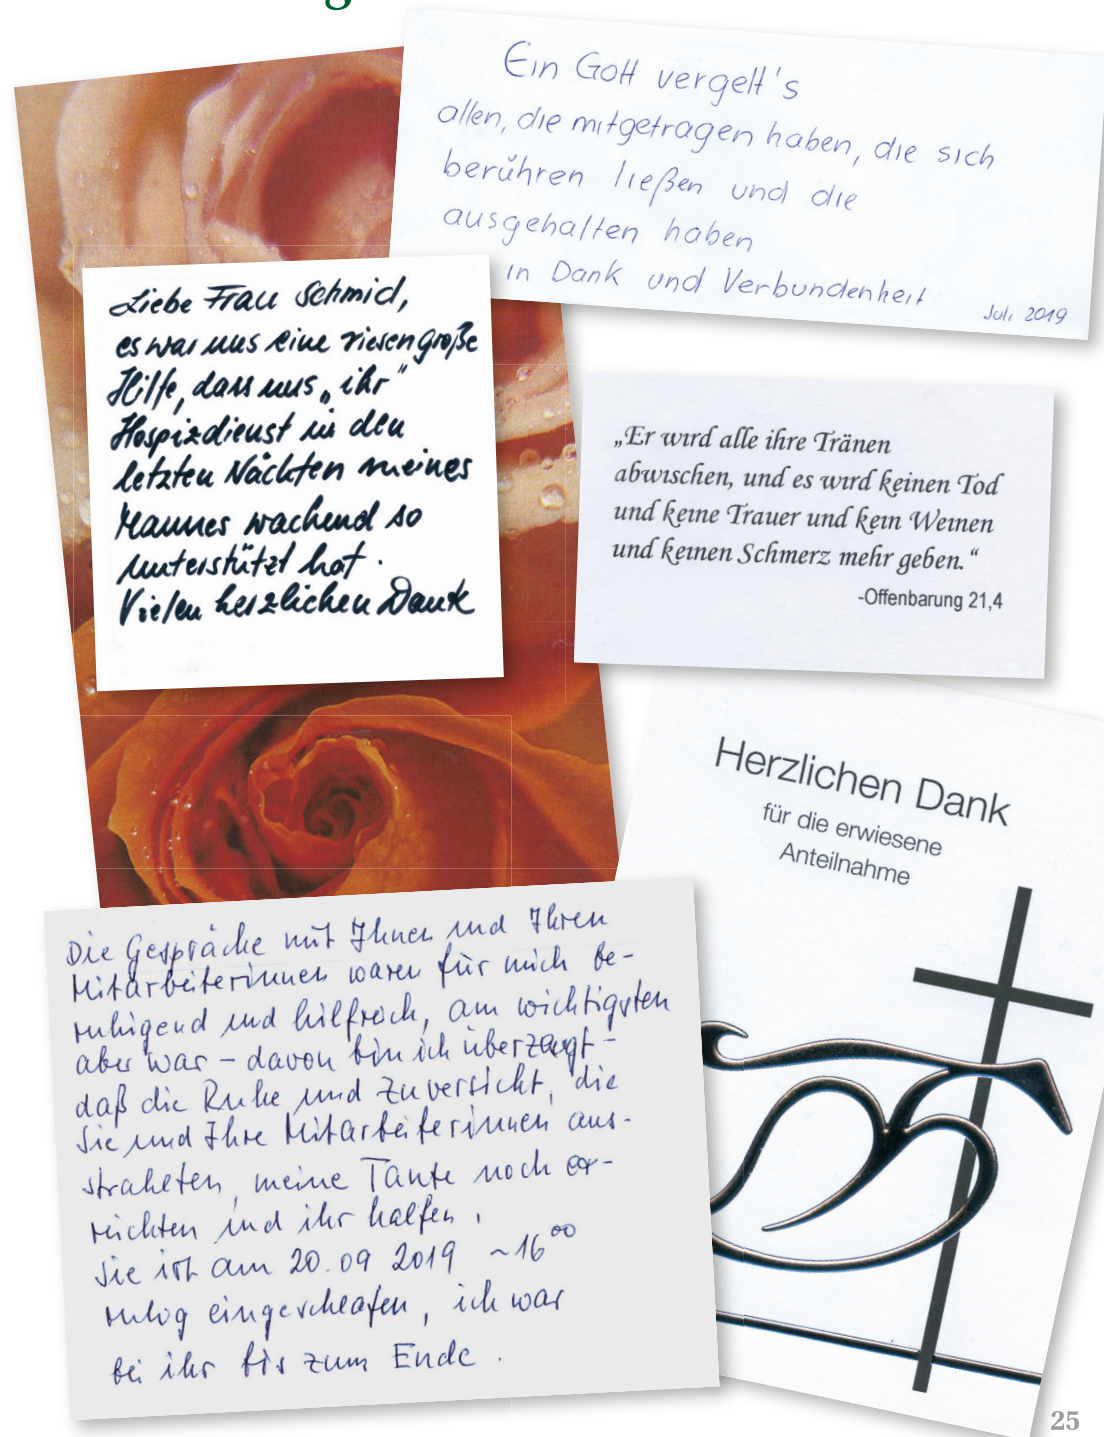 Ein Gott vergelt's
allen, die mitgetragen haben, die sich
berühren ließen und die
ausgehalten haben
in Dank und Verbundenheit
Juli 2019
Liebe Frau Schmid,
es war uns eine riesengroße
Hilfe, dass uns „ihr"
Hospizdienst in den
letzten Nächten meines
Mannes wachend so
unterstützt hat.
Vielen herzlichen Dank
„Er wird alle ihre Tränen
abwischen, und es wird keinen Tod
und keine Trauer und kein Weinen
und keinen Schmerz mehr geben."
-Offenbarung 21,4
Herzlichen Dank
für die erwiesene
Anteilnahme
Die Gespräche mit Ihnen und Ihren
Mitarbeiterinnen waren für mich be-
ruhigend und hilfreich, am wichtigsten
aber war – davon bin ich überzeugt –
daß die Ruhe und Zuversicht, die
Sie und Ihre Mitarbeiterinnen aus-
strahlten, meine Tante noch er-
reichten und ihr halfen.
Sie ist am 20.09 2019 ~16⁰⁰
ruhig eingeschlafen, ich war
bei ihr bis zum Ende.
25